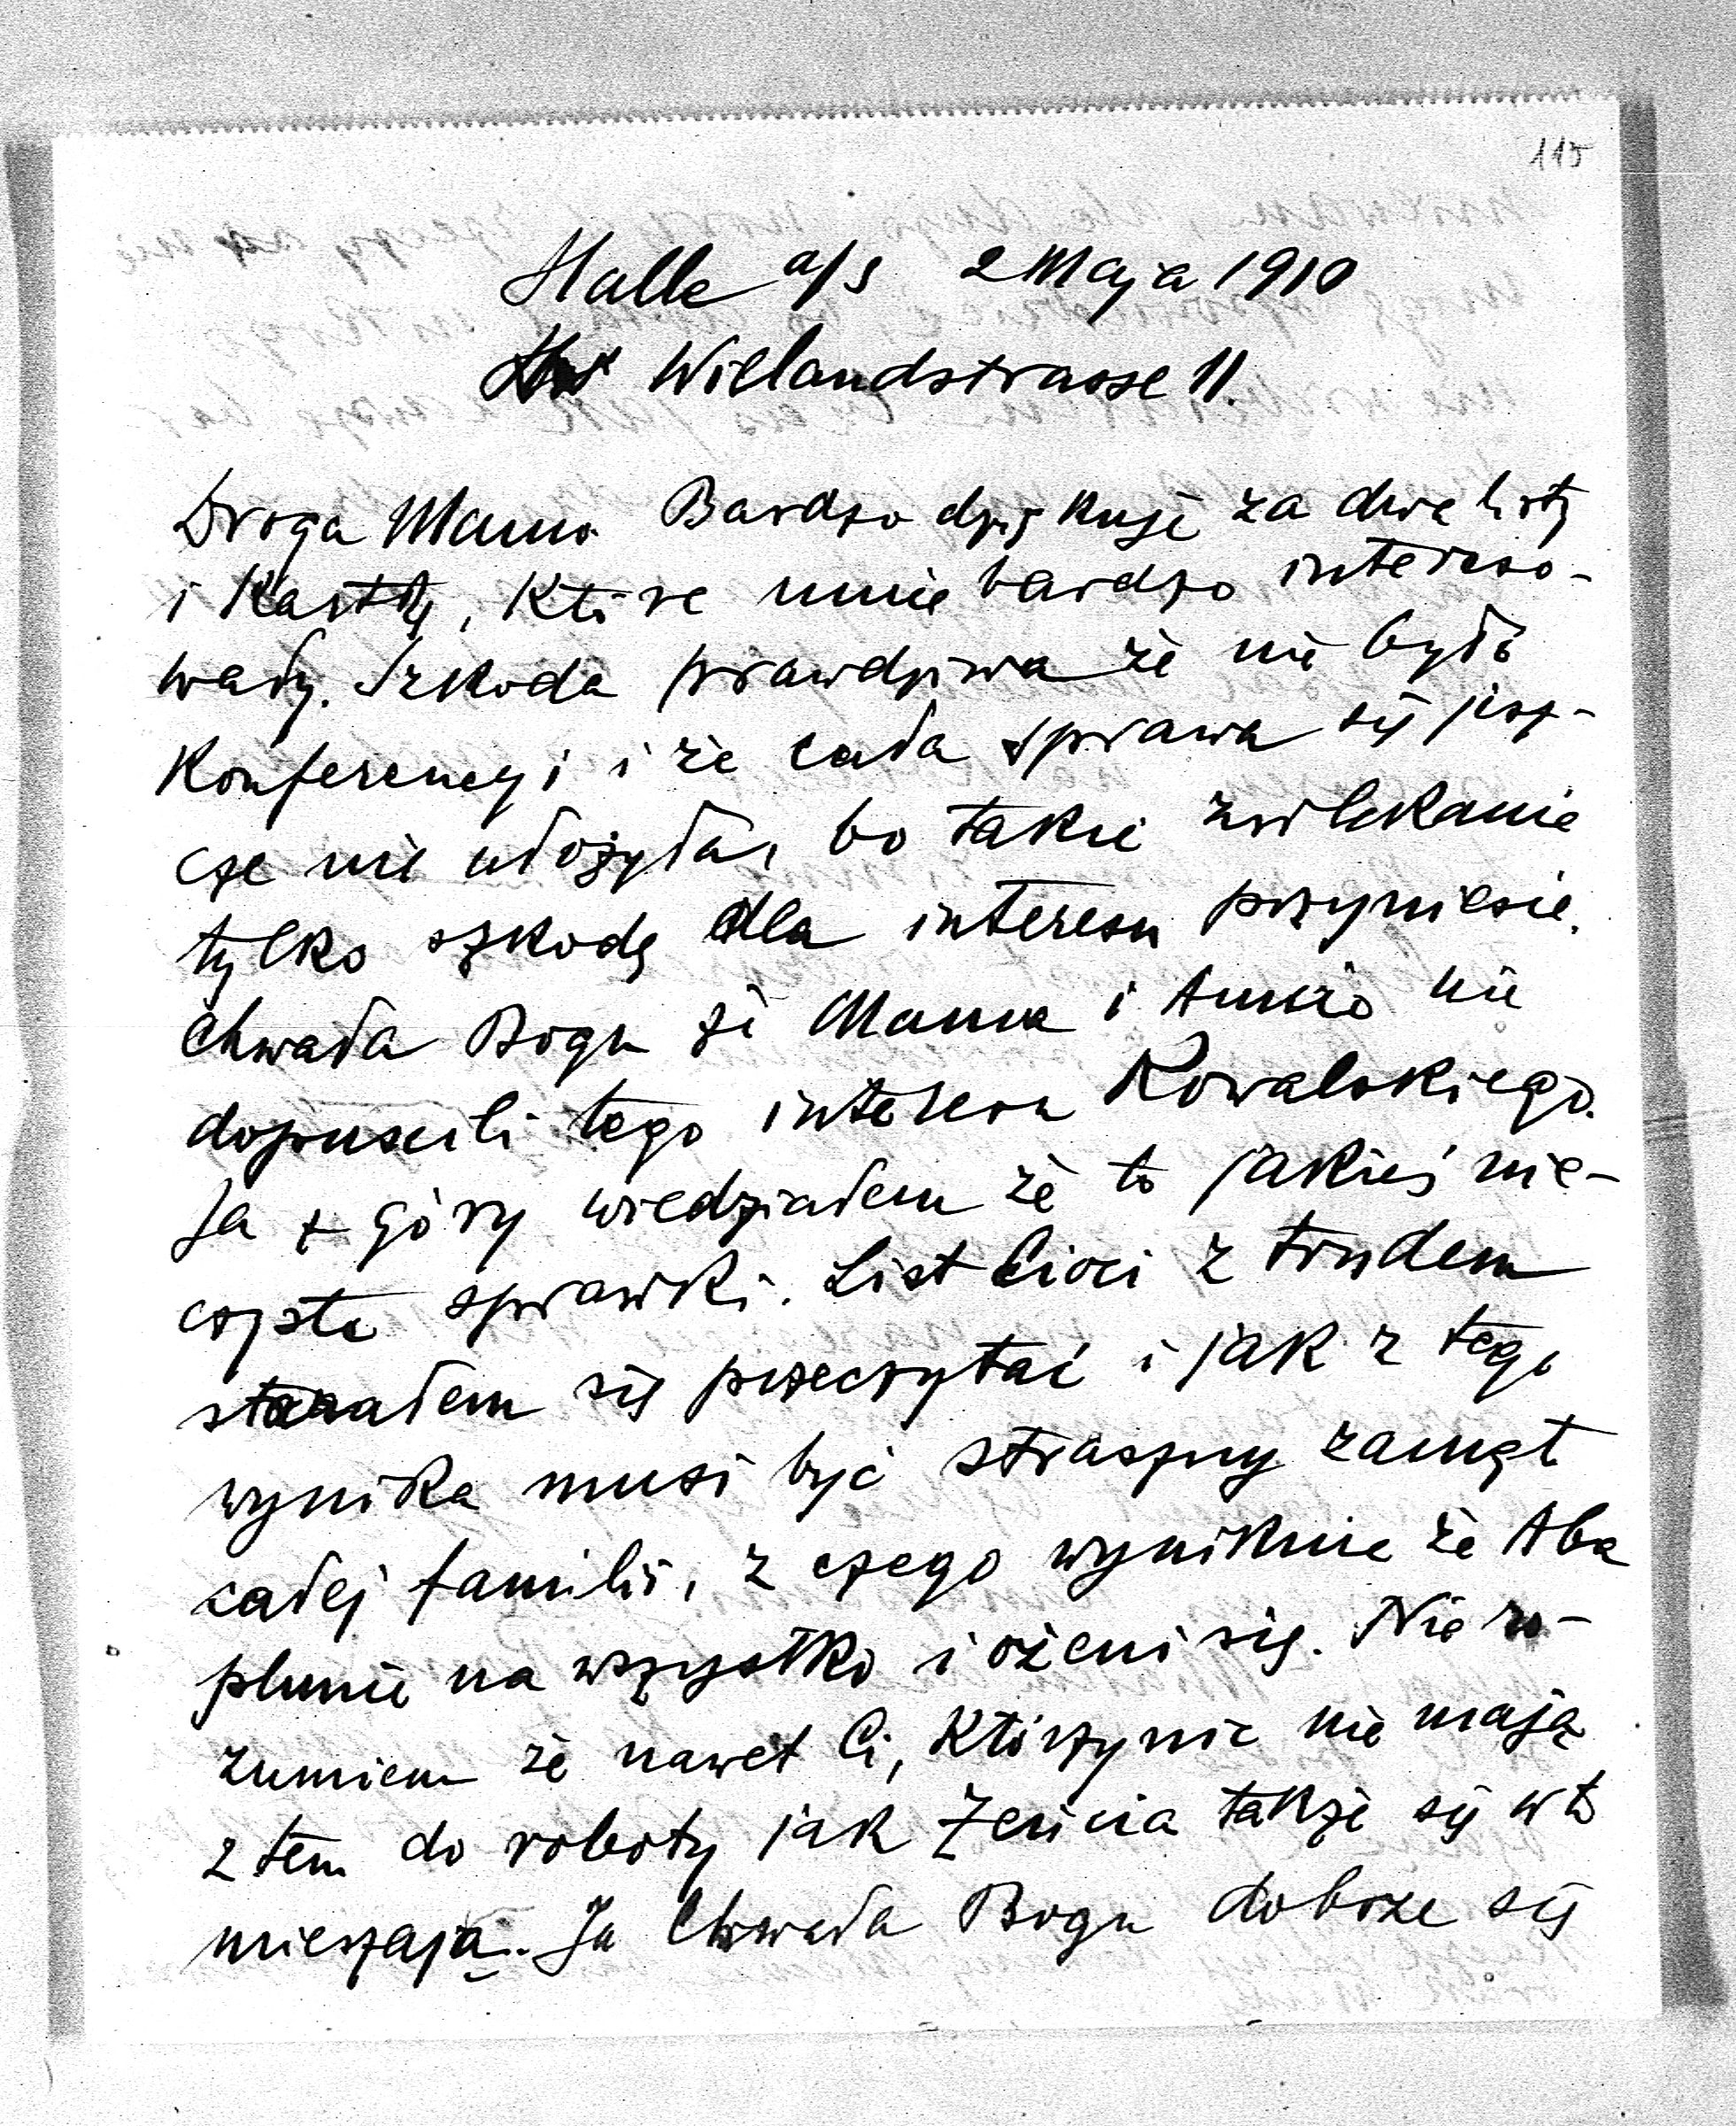 115
Halle a/S 2 Maja 1910
Wielandstrasse 11.
Droga Mamo Bardzo dziękuję za dwa listy
i kartkę, które mnie bardzo intereso-
wały. Szkoda prawdziwa że nie było
Konferencyi i że cała sprawa się jesz-
cze nie ułożyła, bo takie zwlekanie
tylko szkodę dla interesu przyniesie.
Chwała Bogu że Mama i nie
dopuscili tego interesu Kowalskiego.
Ja z góry wiedziałem że to jakieś nie-
czyste sprawki. List Cioci z trudem
starałem się przeczytać i jak z tego
wynika musi być straszny zamęt
całej familii, z czego wyniknie że Aba
plunie na wszystko i ożeni się. Nie ro-
zumiem że nawet Ci, którzy nic nie mają
z tem do roboty jak Żenicia także się w to
mieszają. Ja Chwała Bogu dobrze się